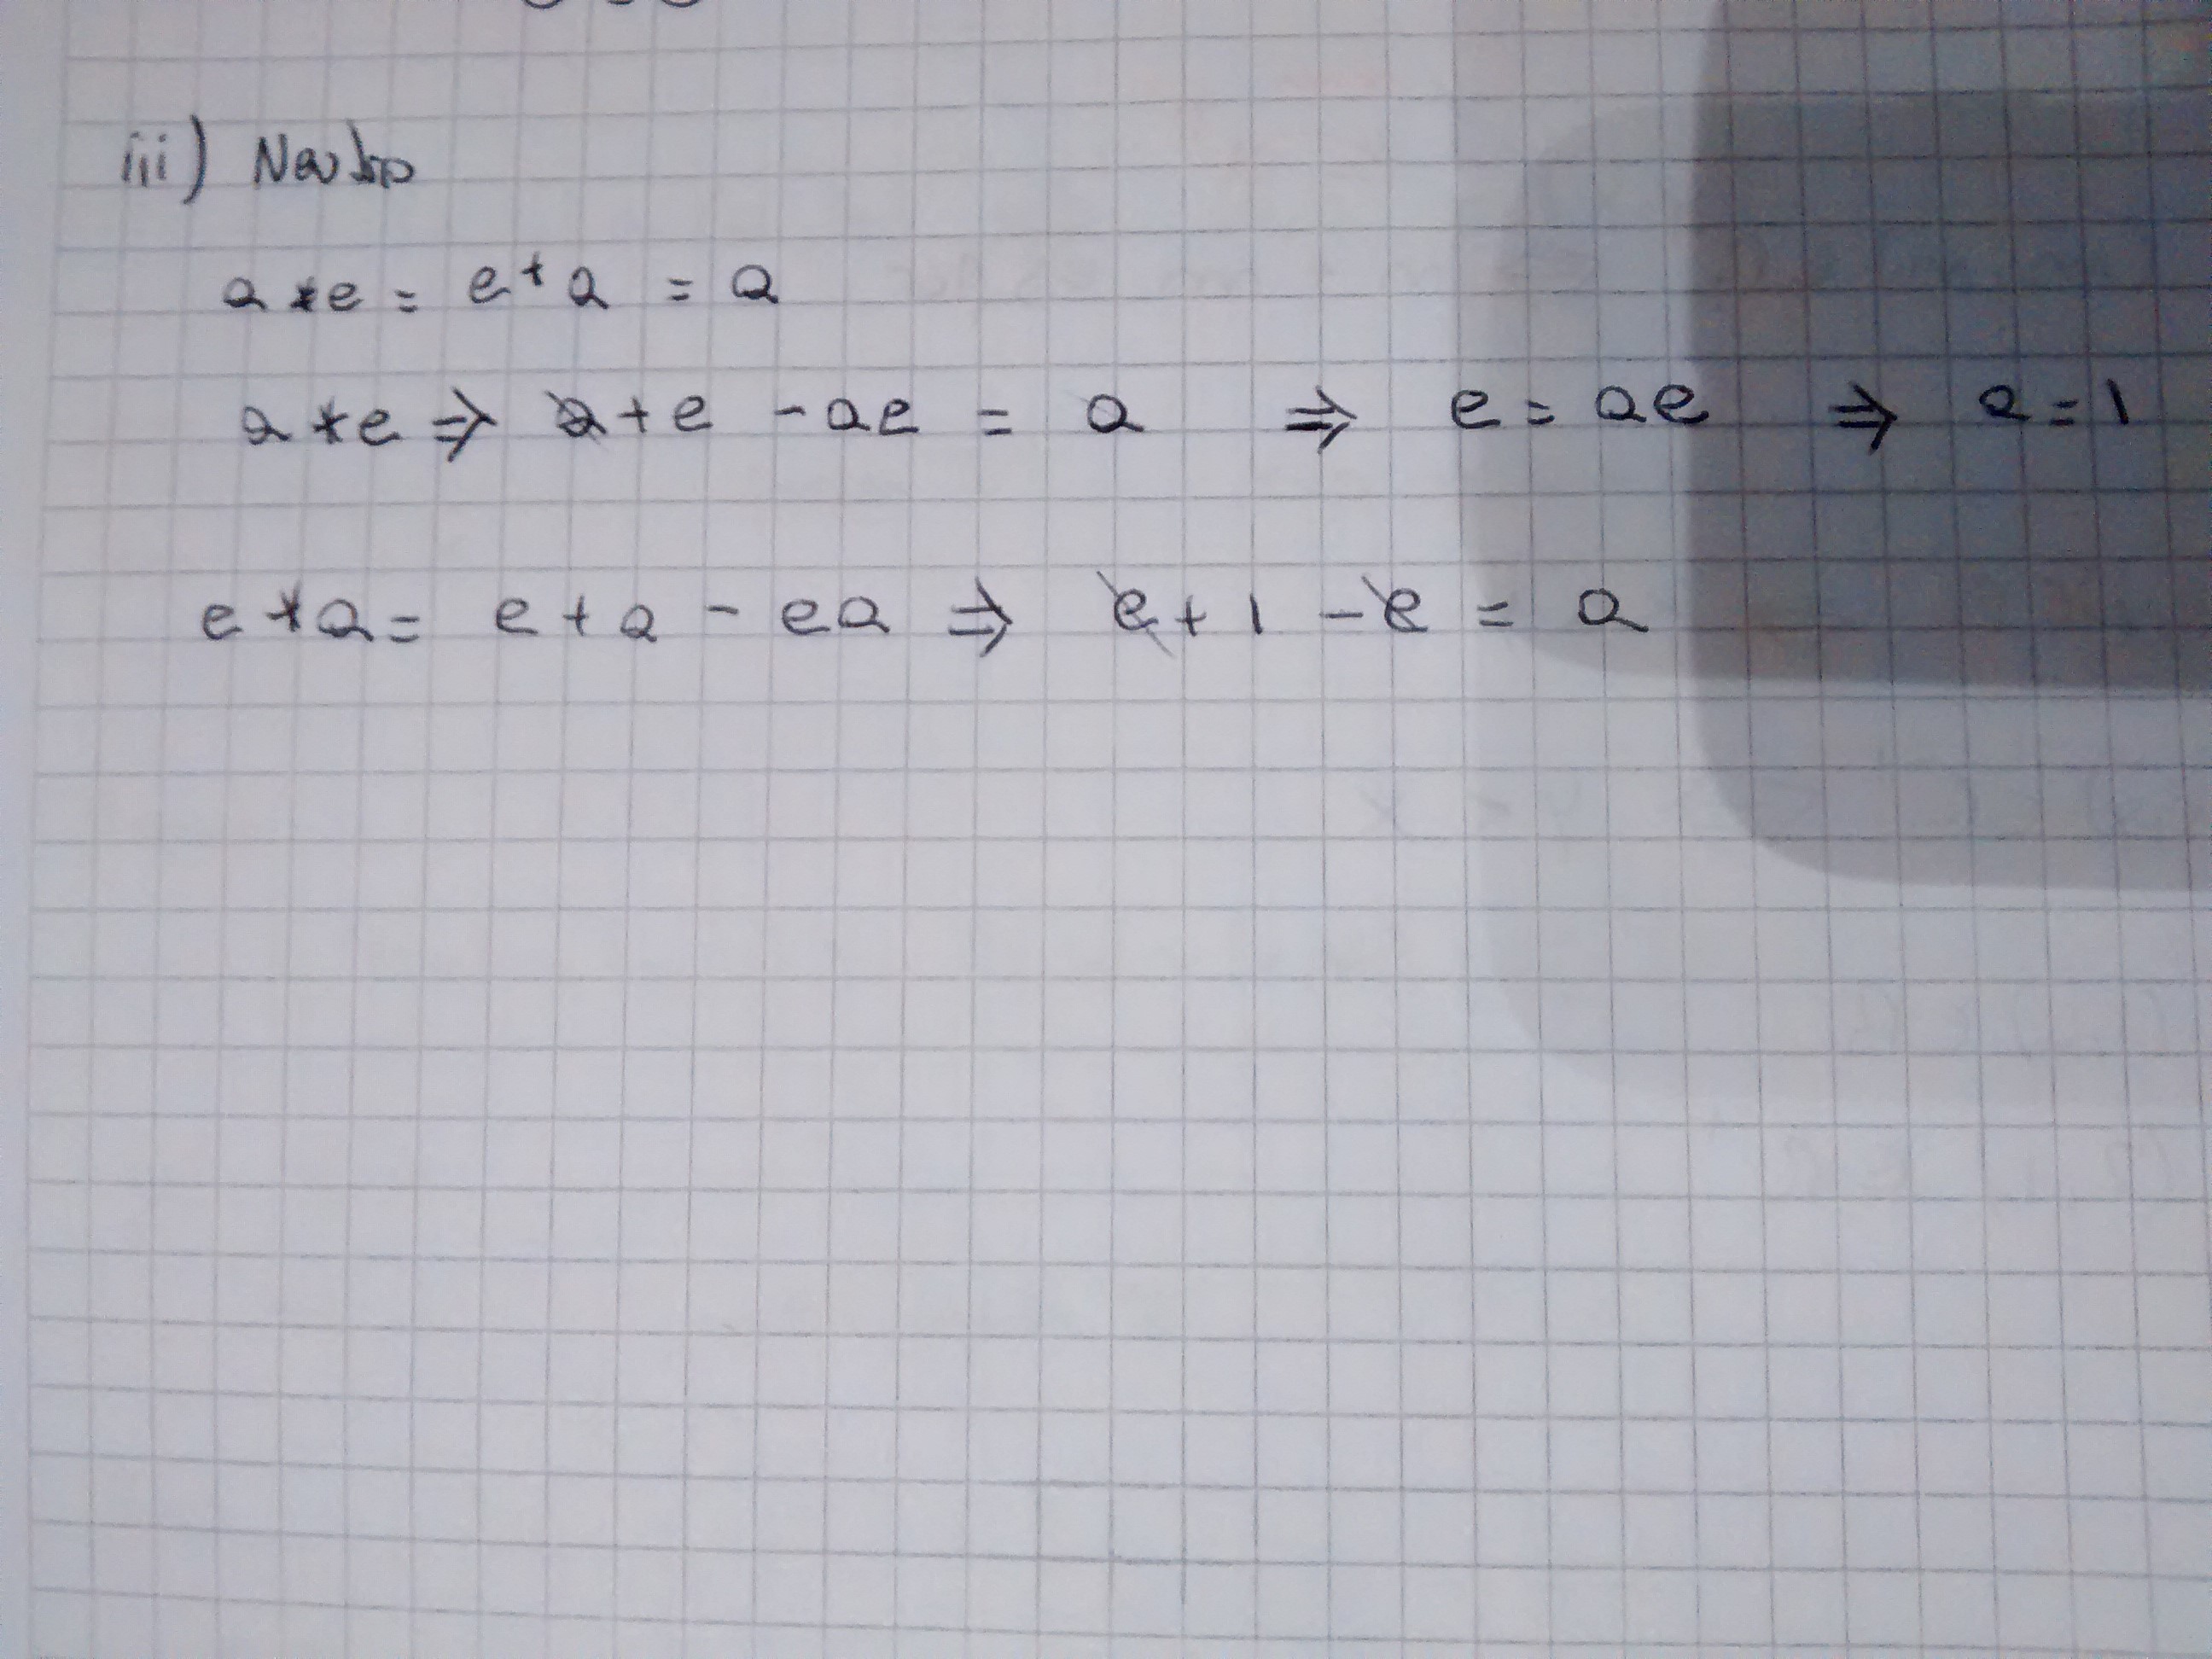 iii) Neutro
a * e = e * a = a
a * e ⇒ a + e - ae = a ⇒ e = ae ⇒ a = 1
e * a = e + a - ea ⇒ e + 1 - e = a